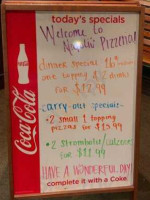 today's specials
Welcome to
Pizzeria!
dinner special 16"
one topping & 2 drinks
for $12.99
carry-out specials-
• 2 small 1 topping
pizzas for $13.99
• 2 stromboli/calzone
for $11.99
HAVE A WONDERFUL DAY!
complete it with a Coke
Coca-Cola